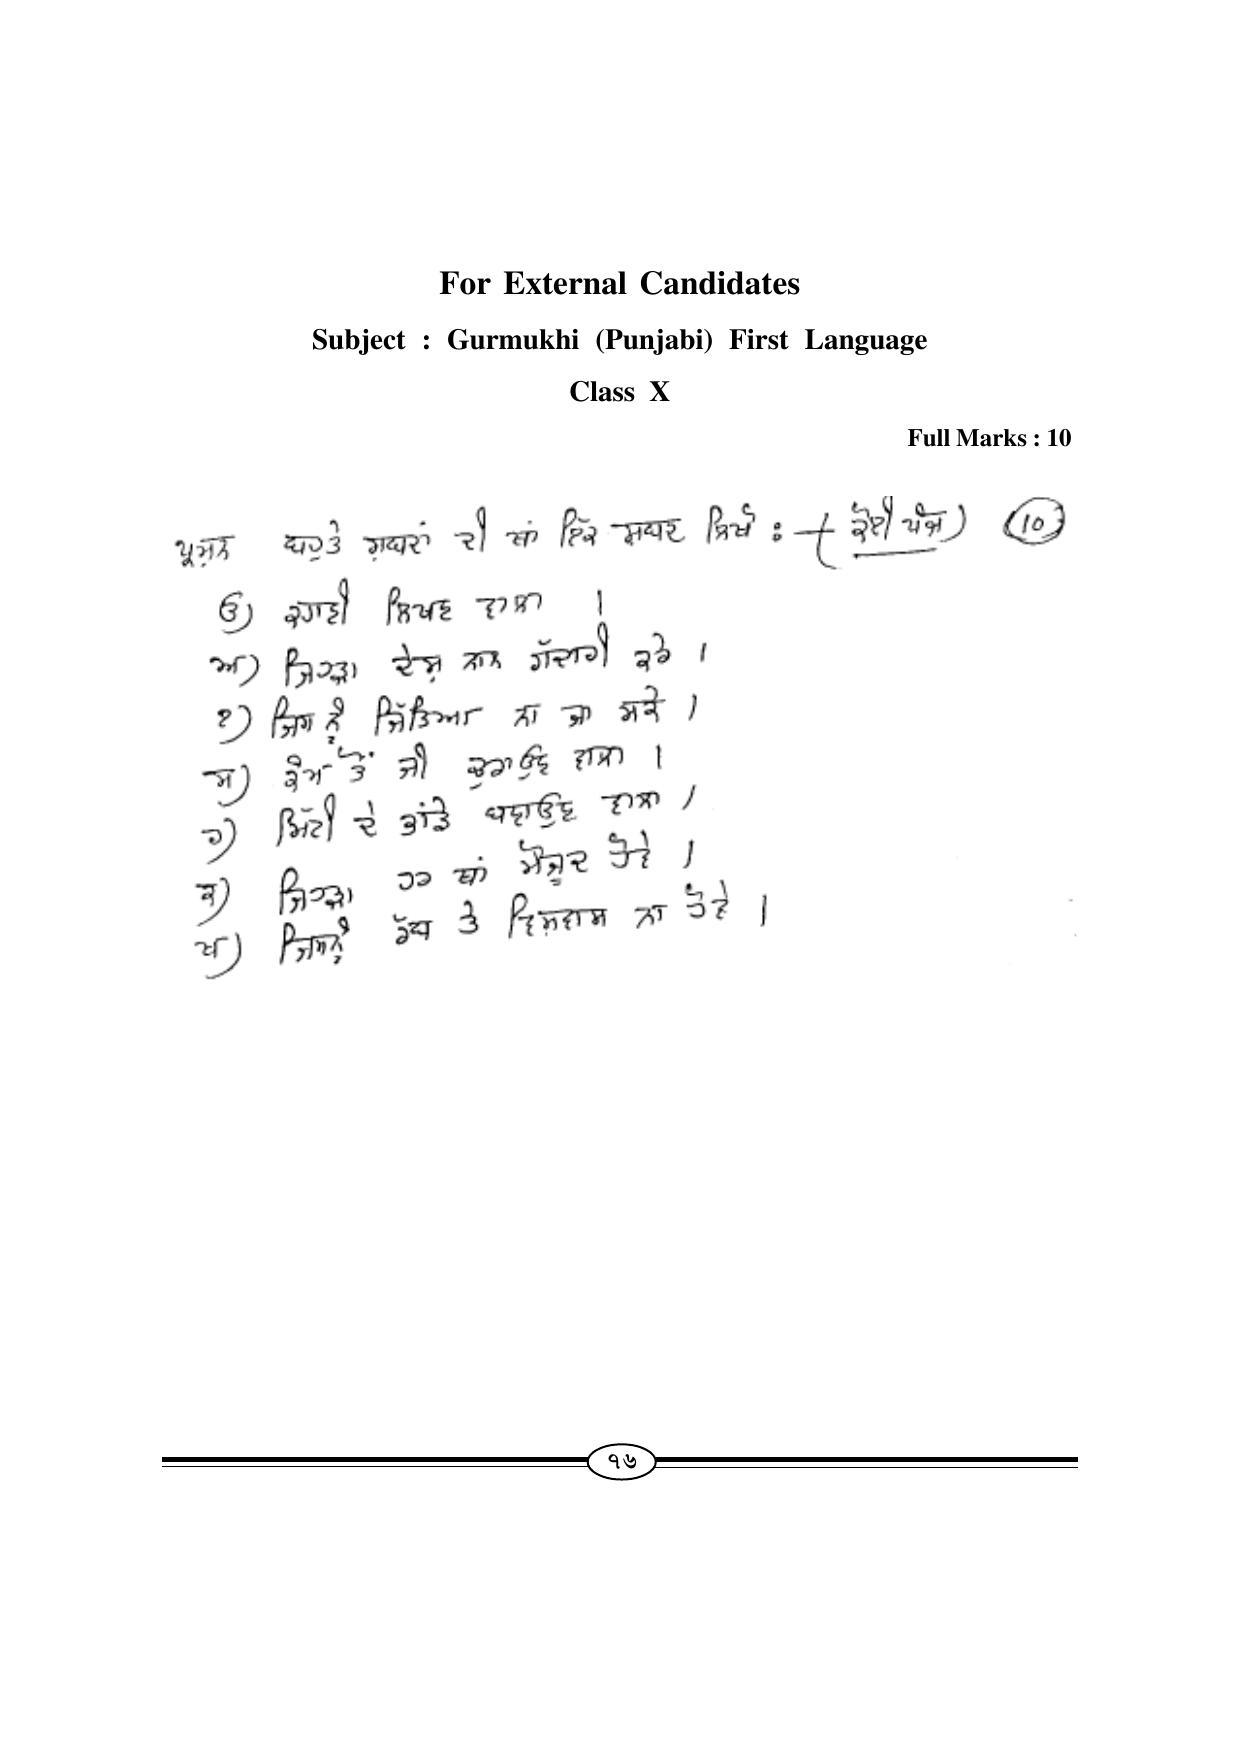 For External Candidates
Subject : Gurmukhi (Punjabi) First Language
Class X
Full Marks : 10
ਪ੍ਰਸ਼ਨ ਬਹੁਤੇ ਸ਼ਬਦਾਂ ਦੀ ਥਾਂ ਇੱਕ ਸ਼ਬਦ ਲਿਖੋ :- (ਕੋਈ ਪੰਜ) 10
ੳ) ਕਹਾਣੀ ਲਿਖਣ ਵਾਲਾ ।
ਅ) ਜਿਹੜਾ ਦੇਸ਼ ਨਾਲ ਗੱਦਾਰੀ ਕਰੇ ।
ੲ) ਜਿਸ ਨੂੰ ਜਿੱਤਿਆ ਨਾ ਜਾ ਸਕੇ ।
ਸ) ਕੰਮ ਤੋਂ ਜੀ ਚੁਰਾਉਣ ਵਾਲਾ ।
ਹ) ਮਿੱਟੀ ਦੇ ਭਾਂਡੇ ਬਣਾਉਣ ਵਾਲਾ ।
ਕ) ਜਿਹੜਾ ਹਰ ਥਾਂ ਮੌਜੂਦ ਹੋਵੇ ।
ਖ) ਜਿਸਨੂੰ ਰੱਬ ਤੇ ਵਿਸ਼ਵਾਸ ਨਾ ਹੋਵੇ ।
১৬